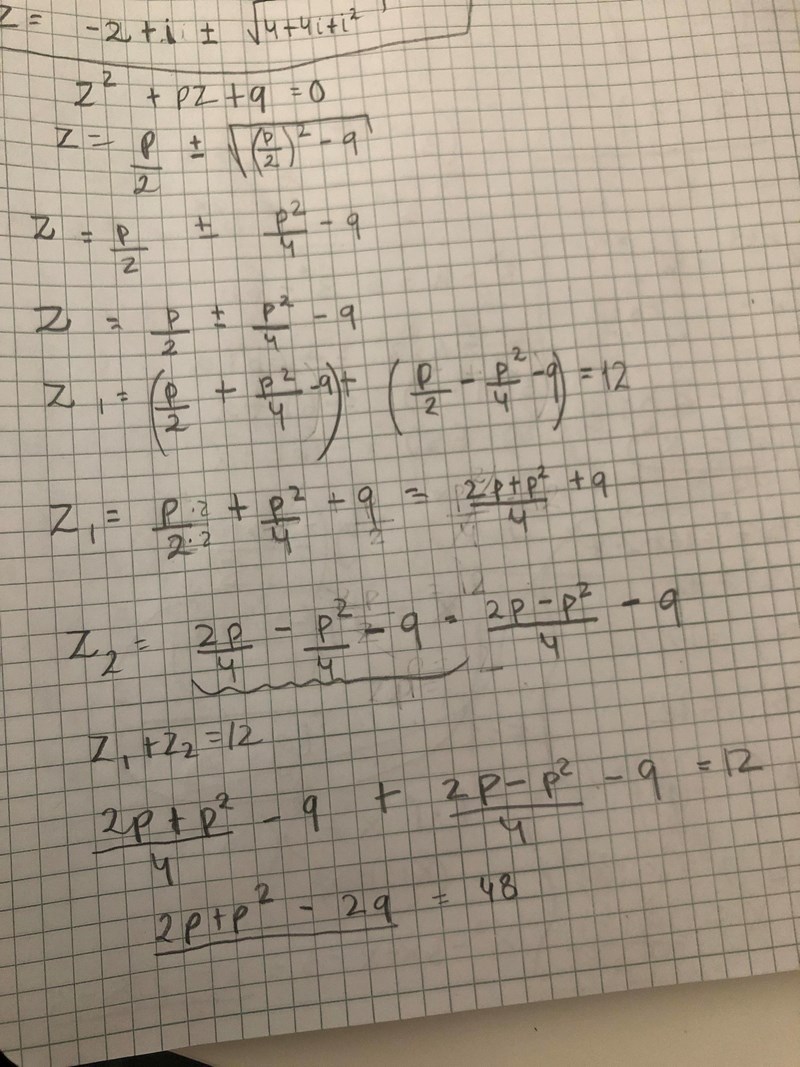 z = -2+i ± √4+4i+i²
z² + pz + q = 0
z = p/2 ± √(p/2)² - q
z = p/2 ± p²/4 - q
z = p/2 ± p²/4 - q
z₁ = (p/2 + p²/4 - q) + (p/2 - p²/4 - q) = 12
z₁ = p·2/2·2 + p²/4 + q = 2p+p²/4 + q
z₂ = 2p/4 - p²/4 - q = 2p-p²/4 - q
z₁ + z₂ = 12
2p+p²/4 - q + 2p-p²/4 - q = 12
2p+p² - 2q = 48